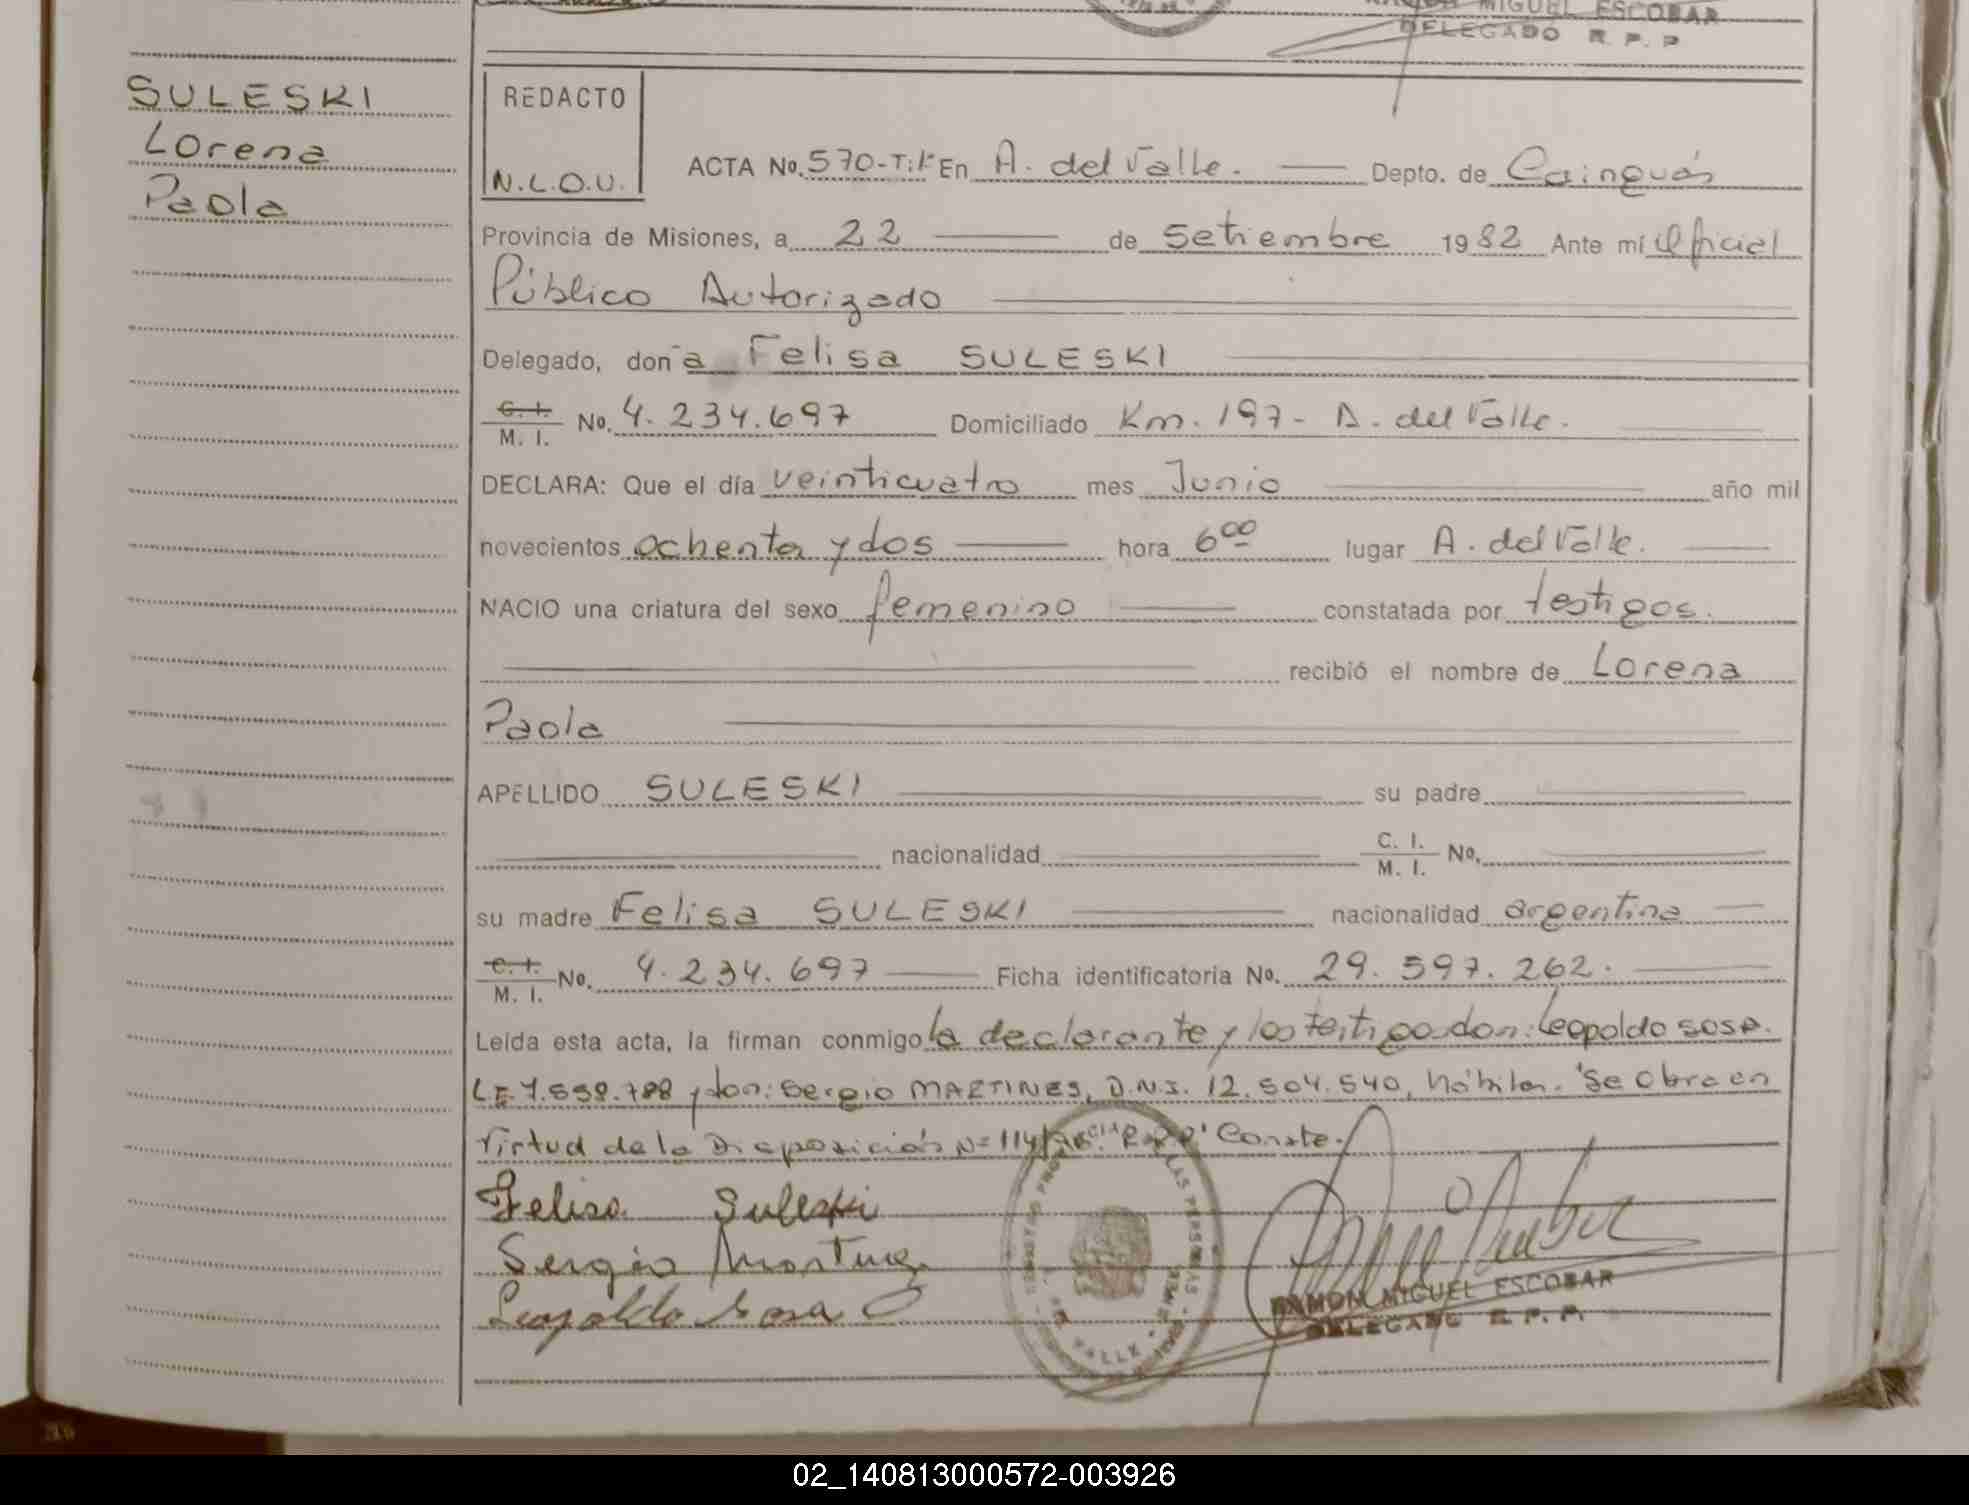 MIGUEL ESCOBAR
DELEGADO R. P. P
SULESKI
Lorena
Paola
REDACTO
N.L.O.U.
ACTA No. 570-T:1º En A. del Valle. Depto. de Cainguás
Provincia de Misiones, a 22 de Setiembre 1982 Ante mí Oficial
Público Autorizado
Delegado, doña Felisa SULESKI
C. I.
M. I. No. 4.234.697 Domiciliado Km. 197- A. del Valle.
DECLARA: Que el día veinticuatro mes Junio año mil
novecientos ochenta y dos hora 6 00 lugar A. del Valle.
NACIO una criatura del sexo femenino constatada por testigos.
recibió el nombre de Lorena
Paola
APELLIDO SULESKI su padre
nacionalidad C. I.
M. I. No.
su madre Felisa SULESKI nacionalidad argentina
C. I.
M. I. No. 4.234.697 Ficha identificatoria No. 29.597.262.
Leída esta acta, la firman conmigo la declarante y los testigos don: Leopoldo SOSA.
LE 7.598.788 y don: Sergio MARTINES, D.N.I. 12.504.540, hábiles. "Se obra en
virtud de la Disposición Nº 114/ R.P.P." Conste.
Felisa Suleski
Sergio Martinez
Leopoldo Sosa
RAMON MIGUEL ESCOBAR
DELEGADO R. P. P.
02_140813000572-003926